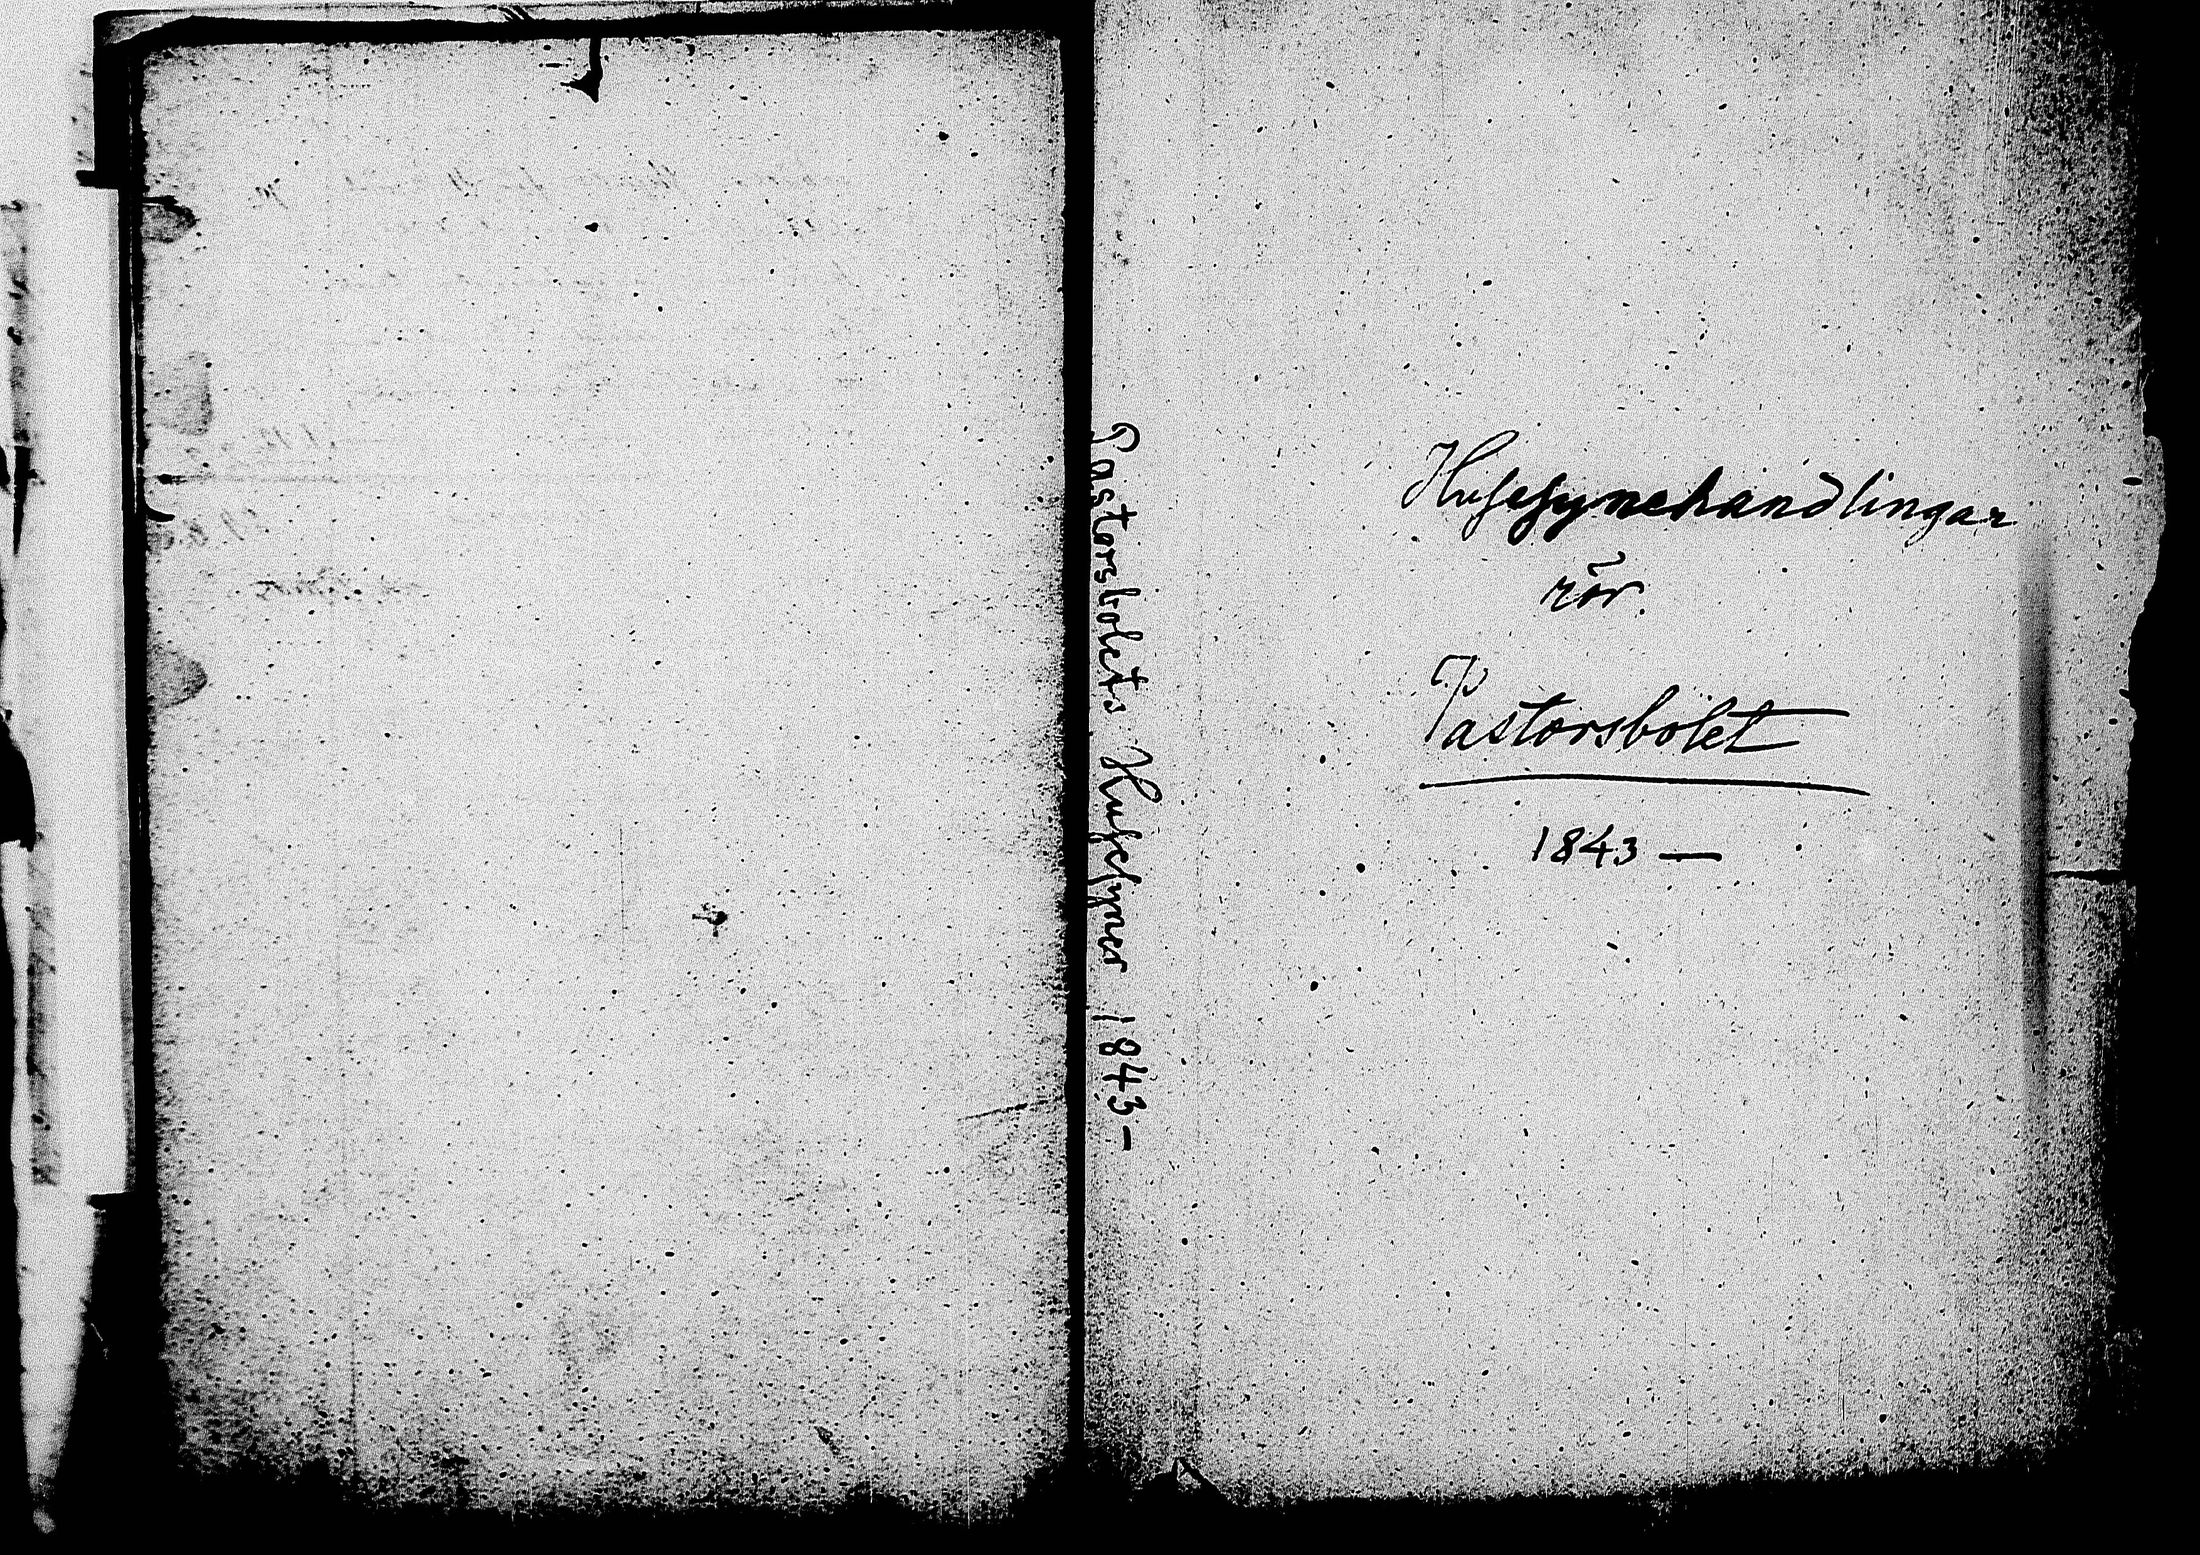 Pastorsbolets Husesyner 1843-
Husesynehandlingar
rör.
Pastorsbolet
1843 —